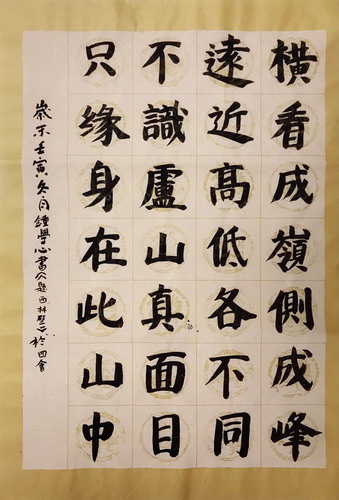 橫看成嶺側成峰
遠近高低各不同
不識廬山真面目
只缘身在此山中
歲末壬寅冬月鍾學心書仌題西林壁於四會